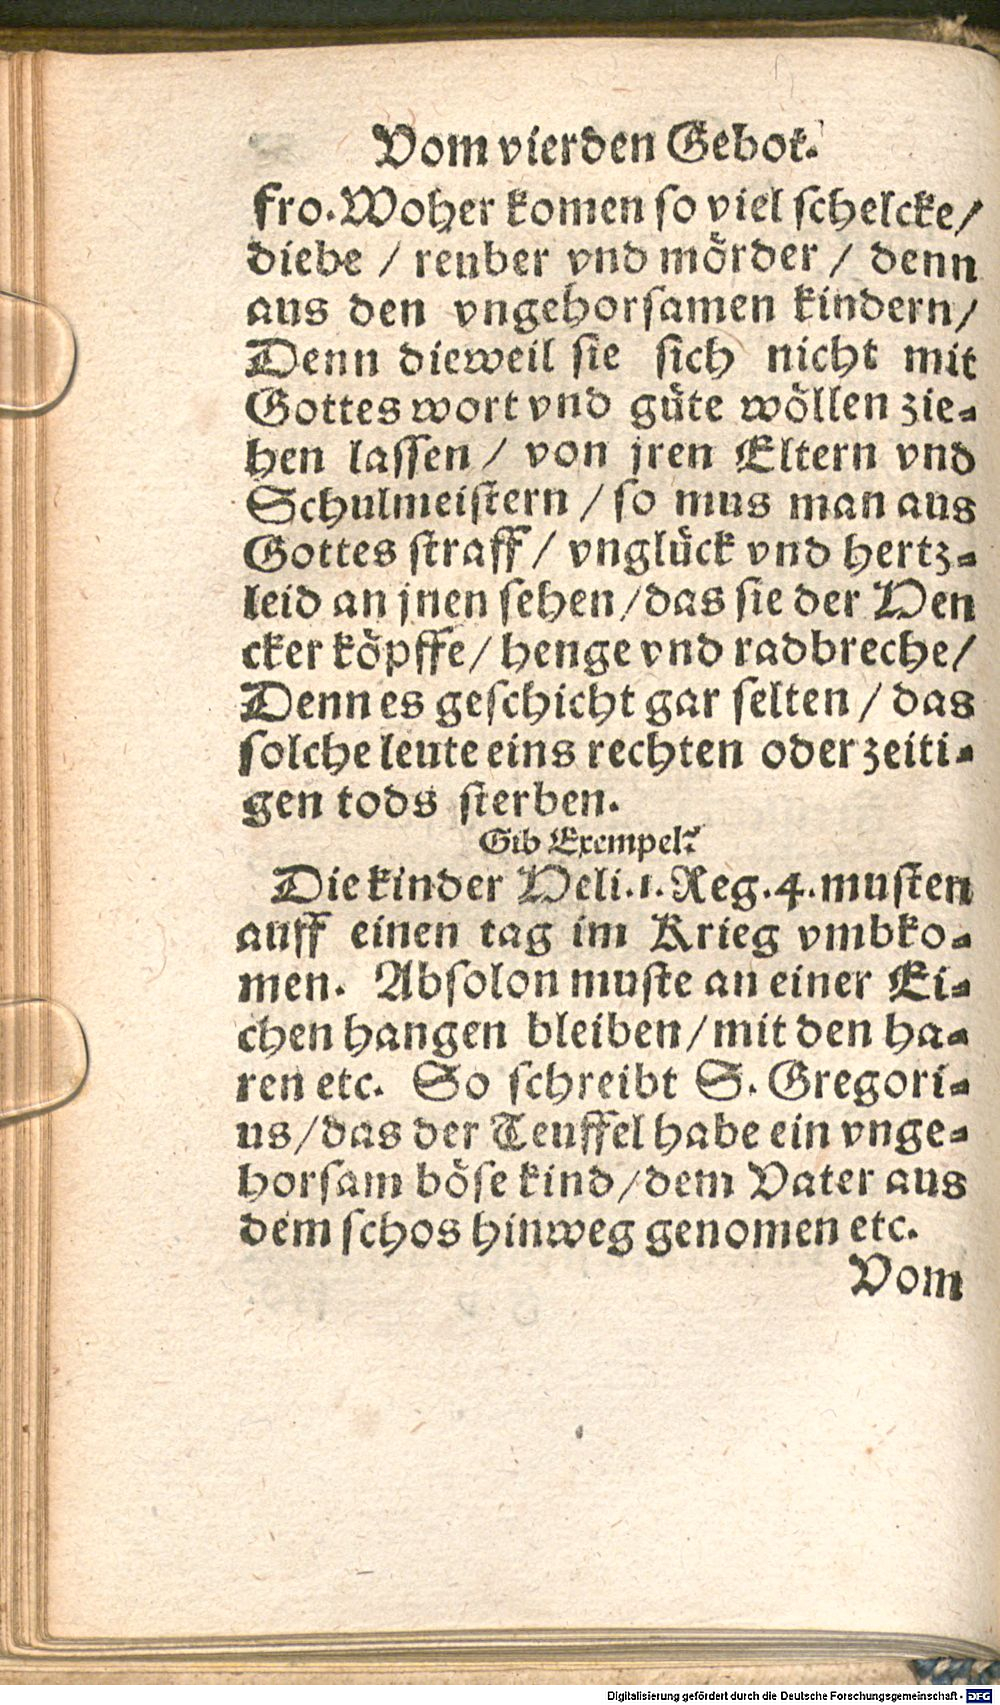 Vom vierden Gebot.
fro. Woher komen so viel schelcke/
diebe / reuber vnd mörder / denn
aus den vngehorsamen kindern/
Denn dieweil sie sich nicht mit
Gottes wort vnd güte wöllen zie-
hen lassen / von jren Eltern vnd
Schulmeistern / so mus man aus
Gottes straff / vnglück vnd hertz-
leid an jnen sehen/das sie der Hen
cker köpffe/ henge vnd radbreche/
Denn es geschicht gar selten / das
solche leute eins rechten oder zeiti-
gen tods sterben.
Gib Exempel?
Die kinder Heli.1.Reg.4.musten
auff einen tag im Krieg vmbko-
men. Absolon muste an einer Ei-
chen hangen bleiben/mit den ha-
ren etc. So schreibt S. Gregori-
us/das der Teuffel habe ein vnge-
horsam böse kind/dem Vater aus
dem schos hinweg genomen etc.
Vom
Digitalisierung gefördert durch die Deutsche Forschungsgemeinschaft - DFG